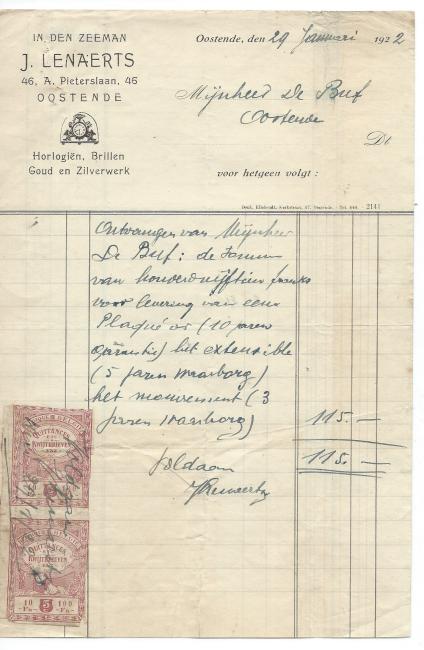 IN DEN ZEEMAN
J. LENAERTS
46, A. Pieterslaan, 46
OOSTENDE
Horlogiën, Brillen
Goud en Zilverwerk
Oostende, den 29 Januari 1922
Mijnheer De Buf
Oostende
Dt
voor hetgeen volgt :
2141
Ontvangen van Mijnheer
De Buf : de somm
van honderdvijftien franks
voor levering van eene
Plaqué or (10 jaren
garantie) bet extensible
(5 jaren waarborg)
het mouvement (3
jaren waarborg) 115.—
115.—
Voldaan
JLenaerts
QUITTANCES
KWIJTSCHRIFTEN
QUITTANCES
KWIJTSCHRIFTEN
10 5 100
Fr. Fr.